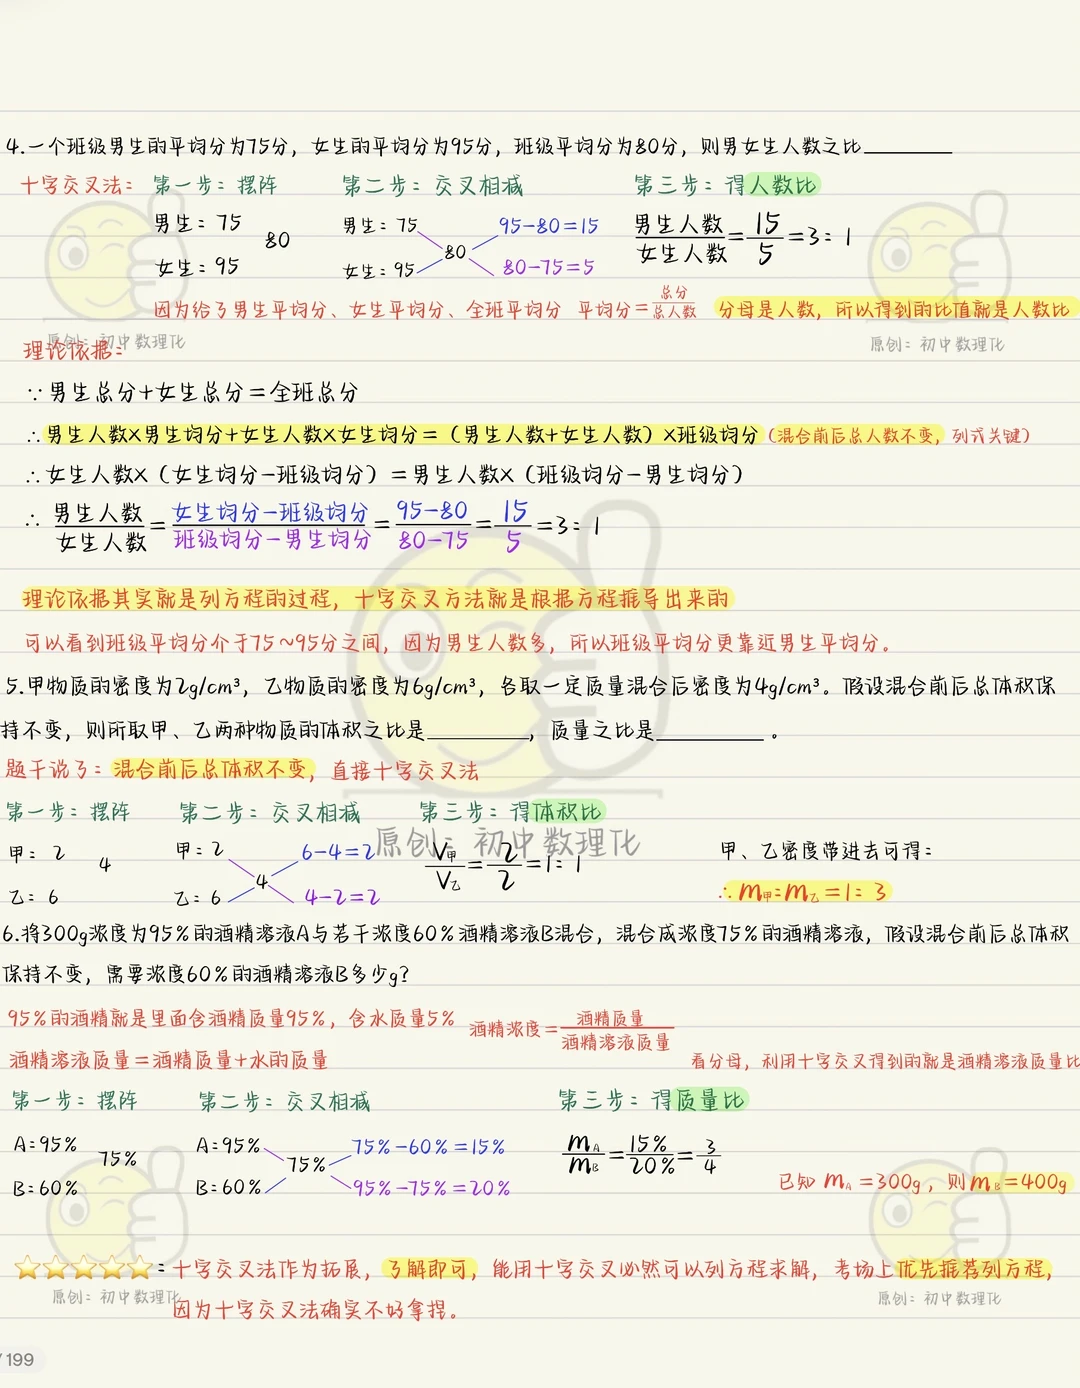 4.一个班级男生的平均分为75分，女生的平均分为95分，班级平均分为80分，则男女生人数之比________
十字交叉法： 第一步：摆阵 第二步：交叉相减 第三步：得人数比
男生：75 80 女生：95
男生：75 女生：95 80 95-80=15 80-75=5
男生人数/女生人数=15/5=3：1
因为给了男生平均分、女生平均分、全班平均分 平均分=总分/总人数 分母是人数，所以得到的比值就是人数比
原创：初中数理化 原创：初中数理化
理论依据：
∵男生总分+女生总分=全班总分
∴男生人数×男生均分+女生人数×女生均分=（男生人数+女生人数）×班级均分（混合前后总人数不变，列式关键）
∴女生人数×（女生均分-班级均分）=男生人数×（班级均分-男生均分）
∴ 男生人数/女生人数=女生均分-班级均分/班级均分-男生均分=95-80/80-75=15/5=3：1
理论依据其实就是列方程的过程，十字交叉方法就是根据方程推导出来的
可以看到班级平均分介于75~95分之间，因为男生人数多，所以班级平均分更靠近男生平均分。
5.甲物质的密度为2g/cm³，乙物质的密度为6g/cm³，各取一定质量混合后密度为4g/cm³。假设混合前后总体积保
持不变，则所取甲、乙两种物质的体积之比是________，质量之比是________。
题干说了：混合前后总体积不变，直接十字交叉法
第一步：摆阵 第二步：交叉相减 第三步：得体积比
原创：初中数理化
甲：2 4 乙：6
甲：2 乙：6 4 6-4=2 4-2=2
V甲/V乙=2/2=1：1
甲、乙密度带进去可得：
∴m甲：m乙=1：3
6.将300g浓度为95%的酒精溶液A与若干浓度60%酒精溶液B混合，混合成浓度75%的酒精溶液，假设混合前后总体积
保持不变，需要浓度60%的酒精溶液B多少g?
95%的酒精就是里面含酒精质量95%，含水质量5% 酒精浓度=酒精质量/酒精溶液质量
酒精溶液质量=酒精质量+水的质量 看分母，利用十字交叉得到的就是酒精溶液质量比
第一步：摆阵 第二步：交叉相减 第三步：得质量比
A：95% 75% B：60%
A：95% B：60% 75% 75%-60%=15% 95%-75%=20%
mA/mB=15%/20%=3/4
已知 mA=300g，则mB=400g
⭐⭐⭐⭐⭐：十字交叉法作为拓展，了解即可，能用十字交叉必然可以列方程求解，考场上优先推荐列方程，
原创：初中数理化 原创：初中数理化
因为十字交叉法确实不好拿捏。
/199